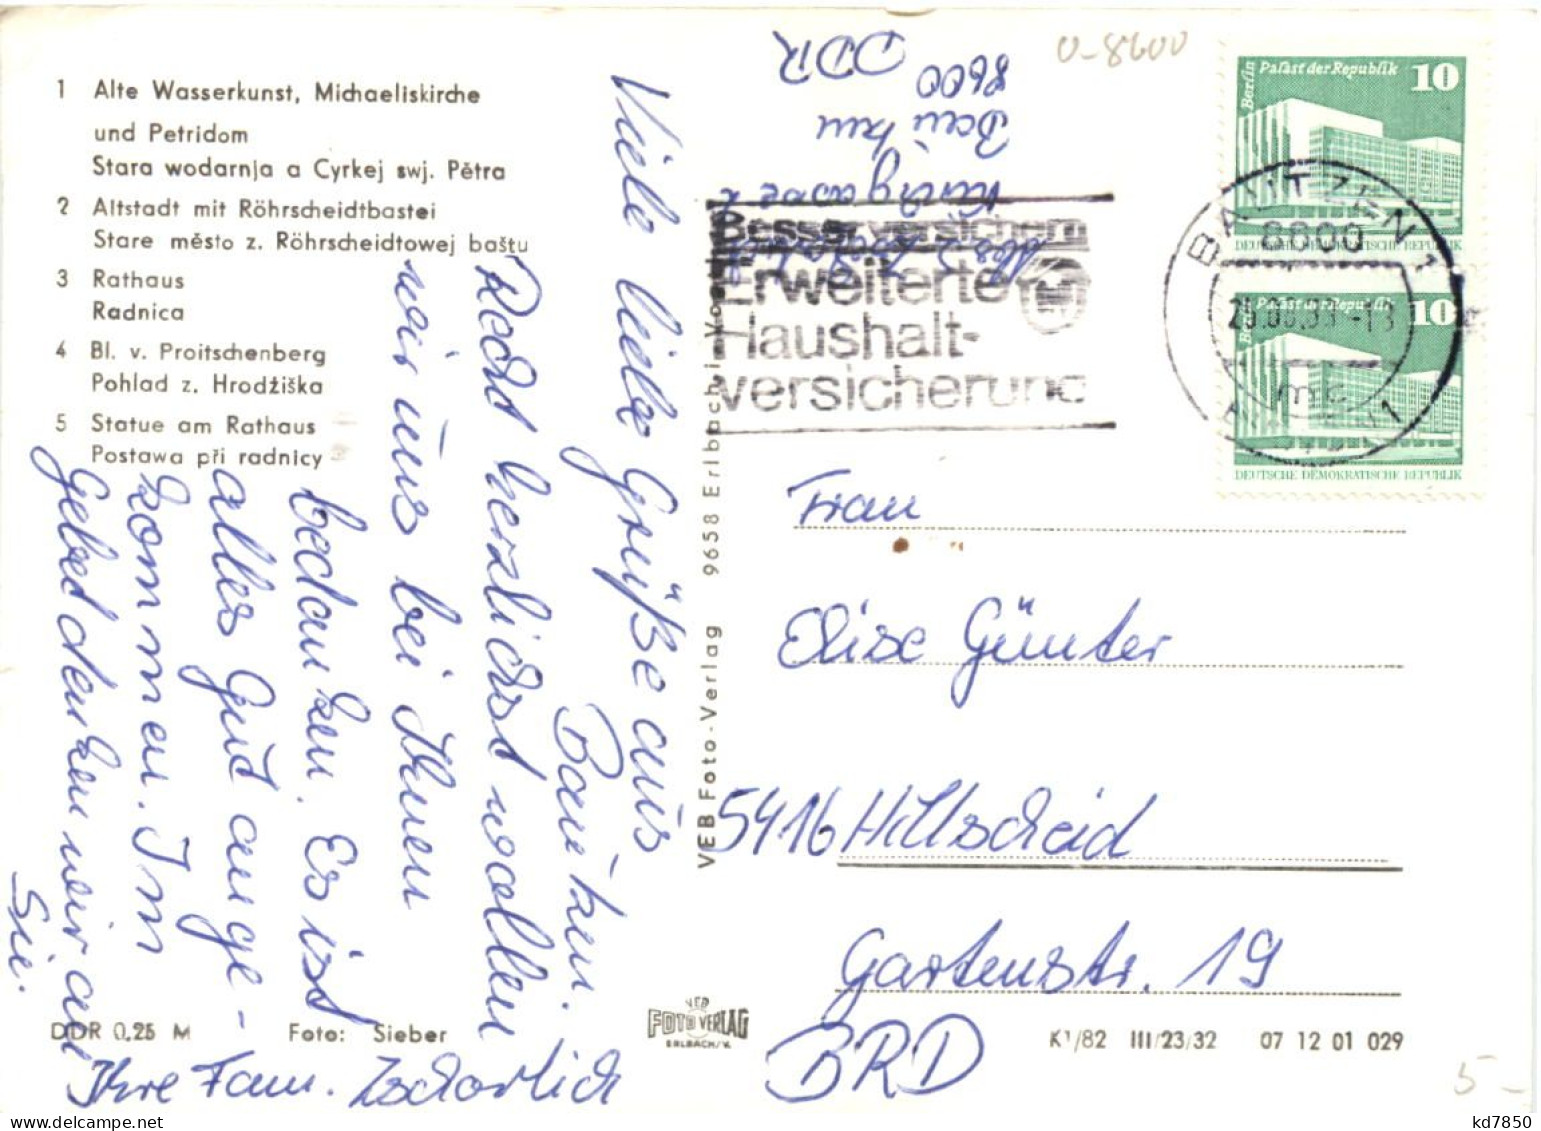 1 Alte Wasserkunst, Michaeliskirche
und Petridom
Stara wodarnja a Cyrkej swj. Pětra
2 Altstadt mit Röhrscheidtbastei
Stare město z. Röhrscheidtowej baštu
3 Rathaus
Radnica
4 Bl. v. Proitschenberg
Pohlad z. Hrodžiška
5 Statue am Rathaus
Postawa při radnicy
Viele liebe Grüße aus
Bautzen.
Recht herzlichst wollen
wir uns bei Ihnen
bedanken. Es ist
alles Gut ange-
kommen. Im
Gebed denken wir an
Sie.
Ihre Fam. Zschorlich
DDR 0.25 M
Foto: Sieber
VEB Foto-Verlag 9658 Erlbach i. Vogtl.
VEB
FOTO VERLAG
ERLBACH/V.
Bautzen
8600
DDR
U-8600
Besser versichern
Erweiterte
Haushalt-
versicherung
BAUTZEN 1
8600
-13
mc
Berlin Palast der Republik 10
DEUTSCHE DEMOKRATISCHE REPUBLIK
Palast der Republik 10
DEUTSCHE DEMOKRATISCHE REPUBLIK
Frau
Elise Günter
5416 Hillscheid
Gartenstr. 19
BRD
K1/82 III/23/32 07 12 01 029
5-
kd7850